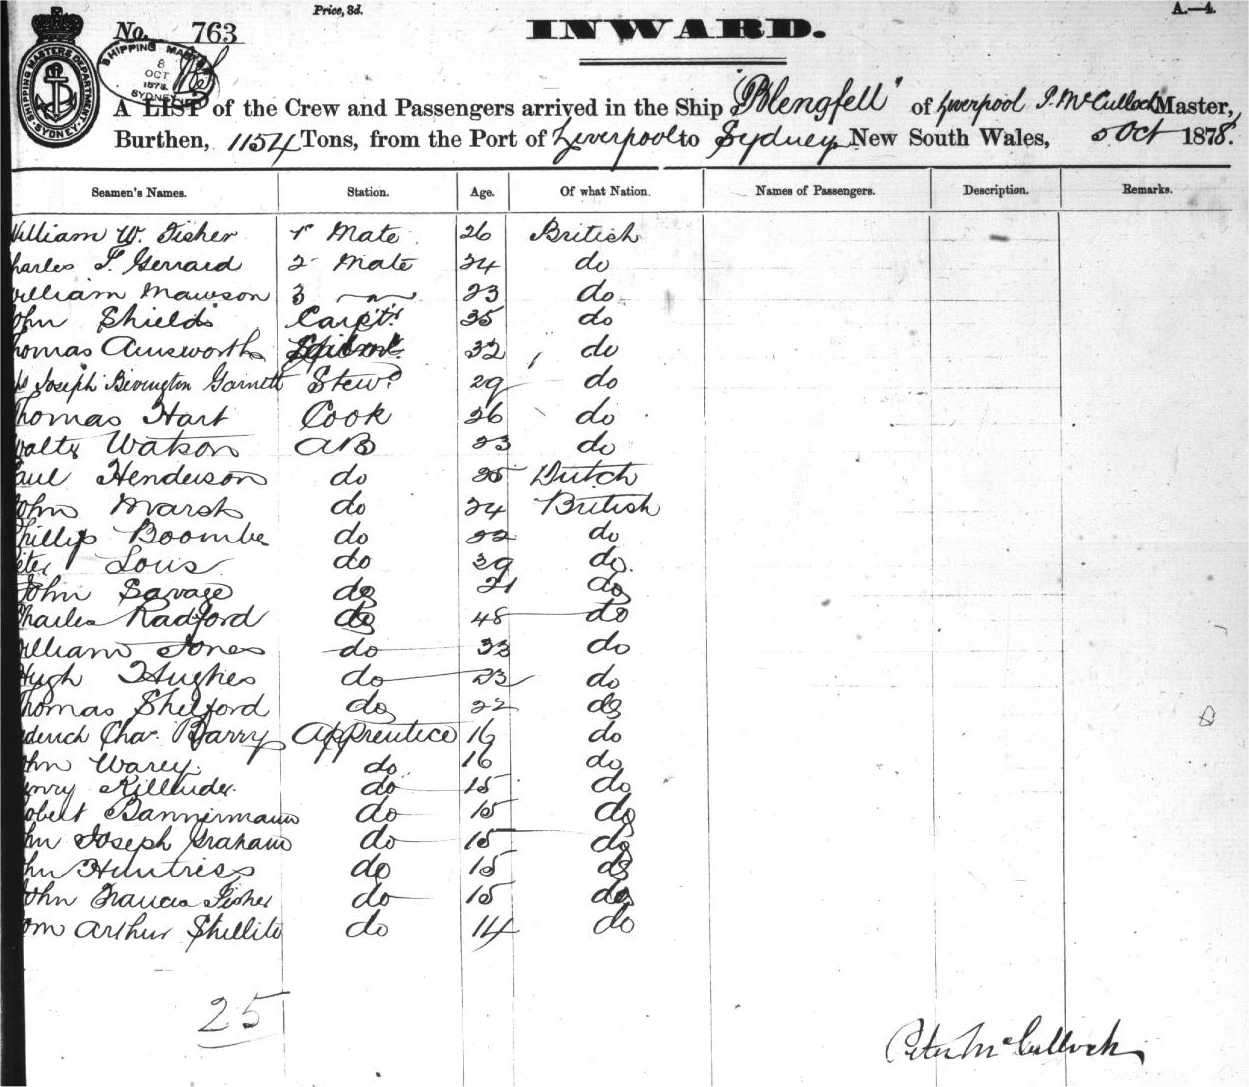 Price, 3d.
A.—4.
No. 763
INWARD.
SHIPPING MASTERS DEPARTMENT
SYDNEY
SHIPPING MASTERS
8
OCT
1878
SYDNEY
A LIST of the Crew and Passengers arrived in the Ship "Blengfell" of Liverpool P. McCulloch Master,
Burthen, 1154 Tons, from the Port of Liverpool to Sydney New South Wales, 5 Oct 1878.
Seamen's Names. Station. Age. Of what Nation. Names of Passengers. Description. Remarks.
William W. Fisher 1st Mate 26 British
harles Gerrard 2 Mate 24 do
William Mawson 3 23 do
ohn Shields Carptr 35 do
homas Ainsworth 32 do
Joseph Bevington Garnett Stewd 29 do
Thomas Hart Cook 26 do
Walter Watson AB 23 do
aul Henderson do 25 Dutch
John Marsh do 24 British
Phillip Boombe do 22 do
eter Louis do 39 do
John Savage do 21 do
Charles Radford do 48 do
William Jones do 33 do
Hugh Hughes do 23 do
Thomas Shelford do 22 do
ederick Chas. Barry Apprentice 16 do
ohn Warey do 16 do
enry do 15 do
obert Bannermann do 15 do
ohn Joseph Graham do 15 do
ohn Huntriss do 15 do
John Francis Fisher do 15 do
om Arthur Shillito do 14 do
25
Peter McCulloch